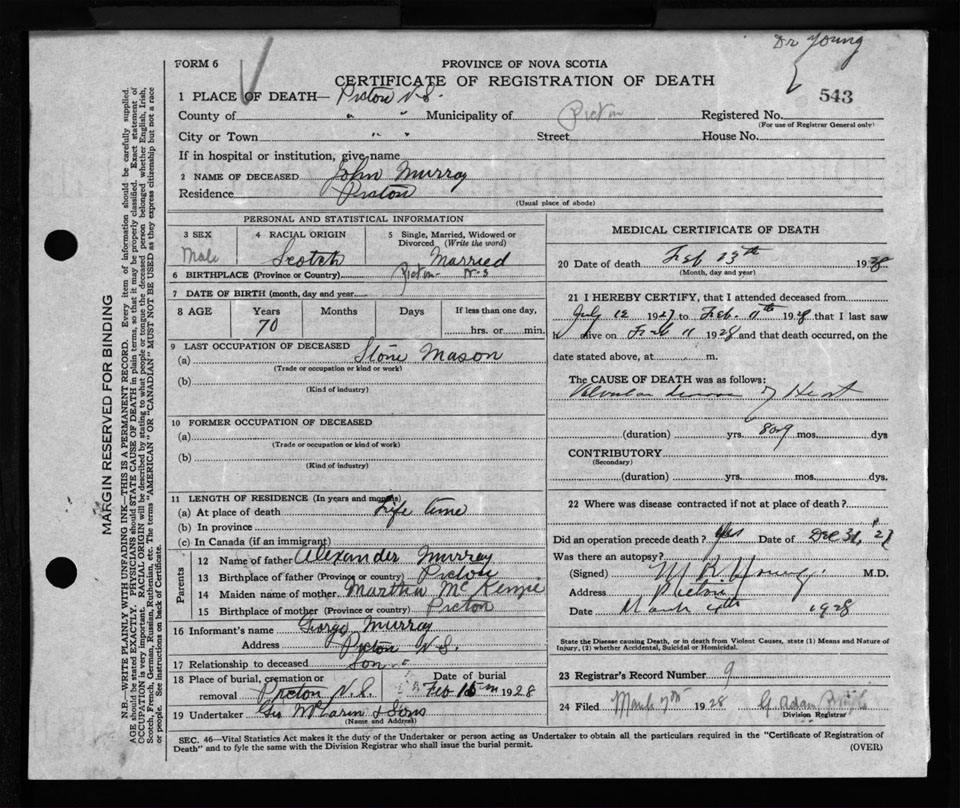 Dr Young
FORM 6
PROVINCE OF NOVA SCOTIA
CERTIFICATE OF REGISTRATION OF DEATH
543
1 PLACE OF DEATH— Pictou N.S.
County of " " Municipality of Pictou Registered No.
(For use of Registrar General only)
City or Town " " Street House No.
If in hospital or institution, give name
2 NAME OF DECEASED John Murray
Residence Pictou
(Usual place of abode)
PERSONAL AND STATISTICAL INFORMATION
3 SEX Male
4 RACIAL ORIGIN Scotch
5 Single, Married, Widowed or Divorced (Write the word) Married
6 BIRTHPLACE (Province or Country) Pictou N-S
7 DATE OF BIRTH (month, day and year)
8 AGE Years Months Days If less than one day,
70 hrs. or min.
9 LAST OCCUPATION OF DECEASED
(a) Stone Mason
(Trade or occupation or kind or work)
(b)
(Kind of industry)
10 FORMER OCCUPATION OF DECEASED
(a)
(Trade or occupation or kind of work)
(b)
(Kind of industry)
11 LENGTH OF RESIDENCE (In years and months)
(a) At place of death Life time
(b) In province
(c) In Canada (if an immigrant)
Parents
12 Name of father Alexander Murray
13 Birthplace of father (Province or country) Pictou
14 Maiden name of mother Martha McKenzie
15 Birthplace of mother (Province or country) Pictou
16 Informant's name George Murray
Address Pictou N.S.
17 Relationship to deceased Son
18 Place of burial, cremation or removal Pictou N.S. Date of burial Feb 15th 1928
19 Undertaker Geo McLaren & Sons
(Name and Address)
MEDICAL CERTIFICATE OF DEATH
20 Date of death Feb 13th 1928
(Month, day and year)
21 I HEREBY CERTIFY, that I attended deceased from
July 12 1927 to Feb. 11th 1928 that I last saw
h alive on Feb 11 1928 and that death occurred, on the
date stated above, at m.
The CAUSE OF DEATH was as follows:
Valvular disease of Heart
(duration) yrs. 8 or 9 mos. dys
CONTRIBUTORY
(Secondary)
(duration) yrs. mos. dys
22 Where was disease contracted if not at place of death?
Did an operation precede death? Yes Date of Dec 31, '27
Was there an autopsy?
(Signed) Young M.D.
Address Pictou
Date March 4th 1928
State the Disease causing Death, or in death from Violent Causes, state (1) Means and Nature of
Injury, (2) whether Accidental, Suicidal or Homicidal.
23 Registrar's Record Number 9
24 Filed March 7th 1928 G. Adam
Division Registrar
SEC. 46—Vital Statistics Act makes it the duty of the Undertaker or person acting as Undertaker to obtain all the particulars required in the "Certificate of Registration of
Death" and to fyle the same with the Division Registrar who shall issue the burial permit.
(OVER)
MARGIN RESERVED FOR BINDING
N.B.—WRITE PLAINLY WITH UNFADING INK—THIS IS A PERMANENT RECORD. Every item of information should be carefully supplied.
AGE should be stated EXACTLY. PHYSICIANS should STATE CAUSE OF DEATH in plain terms, so that it may be properly classified. Exact statement of
OCCUPATION is very important. RACIAL ORIGIN will be described by stating to what people or tongue the deceased person belonged whether English, Irish,
Scotch, French, German, Russian, Ruthenian, etc. The terms "AMERICAN" OR "CANADIAN" MUST NOT BE USED as they express citizenship but not a race
or people. See instructions on back of Certificate.